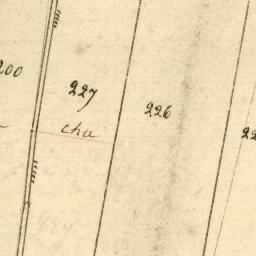 200
227
226
cha
22